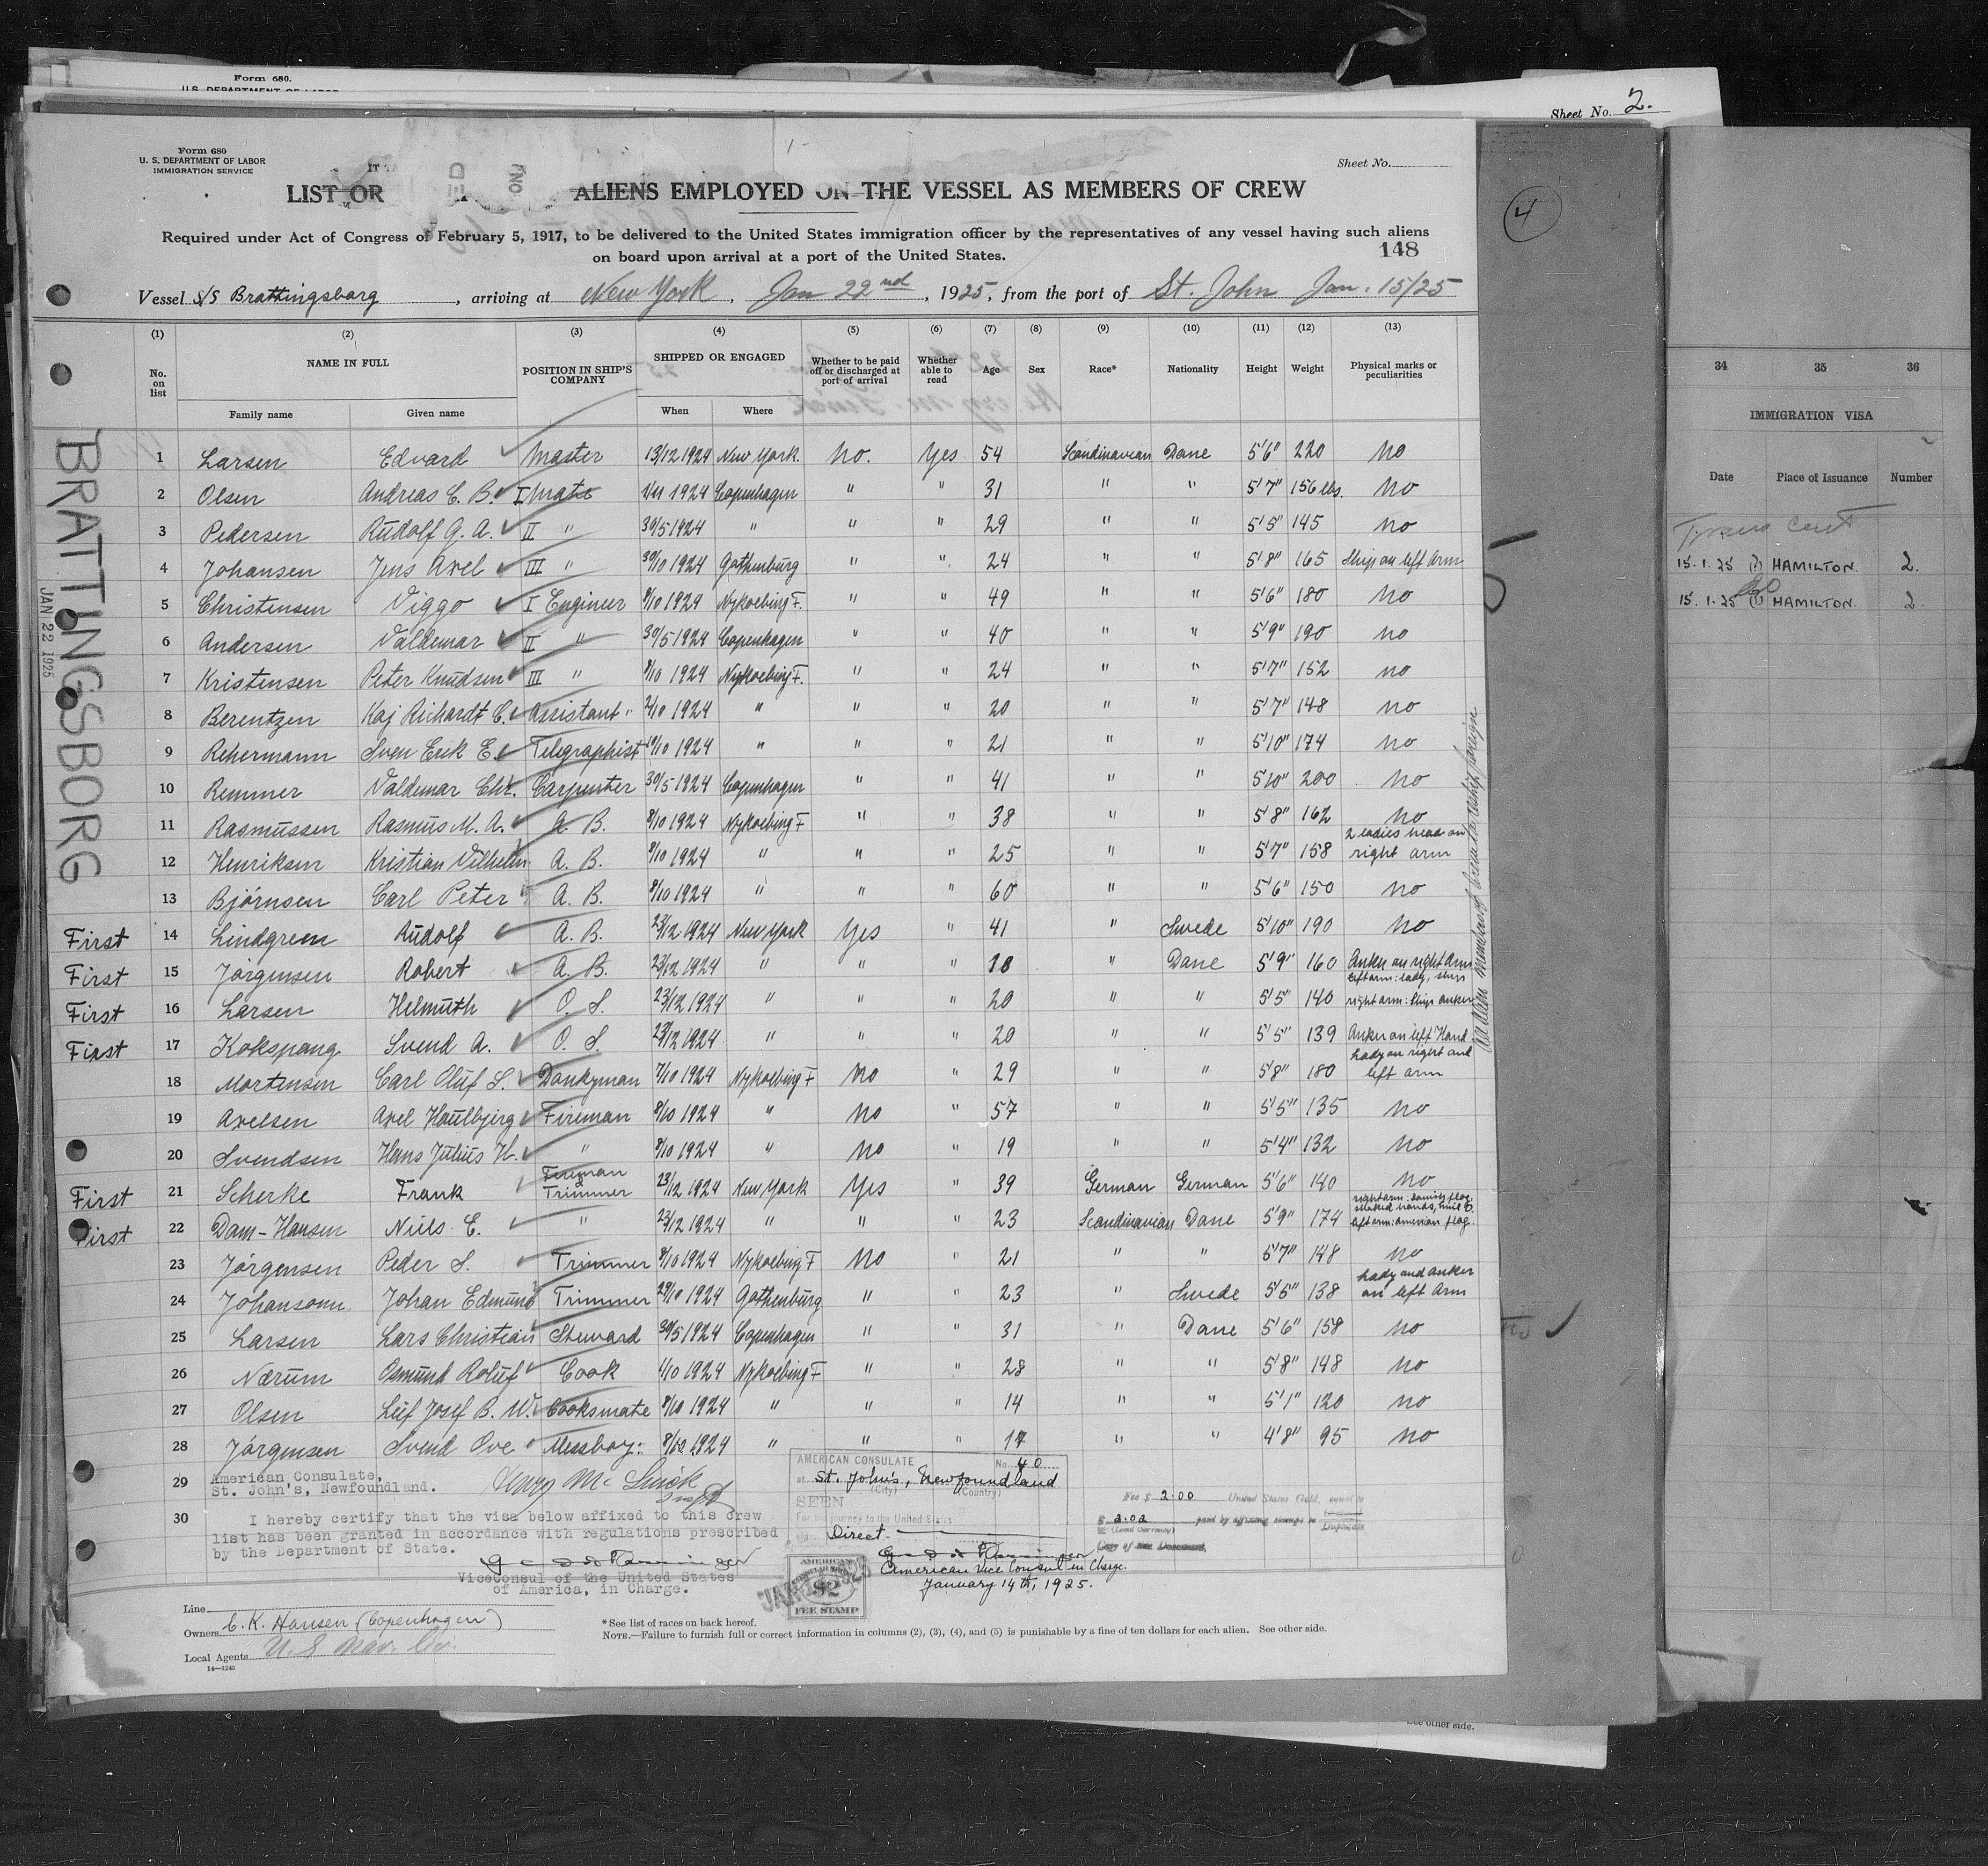 Form 680.
U.S. DEPARTMENT OF LABOR
Sheet No. 2.
Form 680
U. S. DEPARTMENT OF LABOR
IMMIGRATION SERVICE
Sheet No.
LIST OR ALIENS EMPLOYED ON THE VESSEL AS MEMBERS OF CREW
Required under Act of Congress of February 5, 1917, to be delivered to the United States immigration officer by the representatives of any vessel having such aliens
on board upon arrival at a port of the United States.
148
4
Vessel S/S Brattingsborg, arriving at New York, Jan 22nd, 1925, from the port of St. John Jan. 15/25
(1) (2) (3) (4) (5) (6) (7) (8) (9) (10) (11) (12) (13)
No. on list
NAME IN FULL
Family name Given name
POSITION IN SHIP'S COMPANY
SHIPPED OR ENGAGED
When Where
Whether to be paid off or discharged at port of arrival
Whether able to read
Age Sex Race* Nationality Height Weight
Physical marks or peculiarities
BRATTINGSBORG
JAN 22 1925
1 Larsen Edvard Master 13/12 1924 New York. No. Yes 54 Scandinavian Dane 5'6" 220 no
2 Olsen Andreas C. B. I Mate 1/11 1924 Copenhagen " " 31 " " 5'7" 156 lbs. no
3 Pedersen Rudolf G. A. II " 30/5 1924 " " " 29 " " 5'5" 145 no
4 Johansen Jens Axel III " 30/10 1924 Gothenburg " " 24 " " 5'8" 165 Ship on left arm
5 Christensen Viggo I Engineer 8/10 1924 Nykoebing F. " " 49 " " 5'6" 180 no
6 Andersen Valdemar II " 30/5 1924 Copenhagen " " 40 " " 5'9" 190 no
7 Kristensen Peter Knudsen III " 8/10 1924 Nykoebing F. " " 24 " " 5'7" 152 no
8 Berentzen Kaj Richardt C. Assistant " 2/10 1924 " " " 20 " " 5'7" 148 no
9 Rehermann Sven Erik E. Telegraphist 10/10 1924 " " " 21 " " 5'10" 174 no
10 Remmer Valdemar Chr. Carpenter 30/5 1924 Copenhagen " " 41 " " 5'10" 200 no
11 Rasmussen Rasmus M. A. A. B. 8/10 1924 Nykoebing F " " 38 " " 5'8" 162 no
12 Henriksen Kristian Vilhelm A. B. 8/10 1924 " " " 25 " " 5'7" 158 2 ladies head on right arm
13 Bjórnsen Carl Peter A. B. 8/10 1924 " " " 60 " " 5'6" 150 no
First 14 Lindgreen Rudolf A. B. 23/12 1924 New York Yes " 41 " Swede 5'10" 190 no
First 15 Jórgensen Robert A. B. 23/12 1924 " " " " Dane 5'9" 160 Anker on right Arm
First 16 Larsen Helmuth O. S. 23/12 1924 " " " 20 " " 5'5" 140 left arm: lady, ship right arm: Ship anker
First 17 Kokspang Svend A. O. S. 23/12 1924 " " " 20 " " 5'5" 139 Anker on left Hand
18 Mortensen Carl Oluf S. Donkyman 7/10 1924 Nykoebing F no " 29 " " 5'8" 180 Lady on right and left arm
19 Axelsen Axel Haulbjerg Fireman 8/10 1924 " no " 57 " " 5'5" 135 no
20 Svendsen Hans Julius H. " 8/10 1924 " no " 19 " " 5'4" 132 no
First 21 Scherke Frank Fireman & Trimmer 23/12 1924 New York Yes " 39 German German 5'6" 140 no
First 22 Dam-Hansen Niels E. " 23/12 1924 " " " 23 Scandinavian Dane 5'9" 174 right arm: flag shaked hands, left arm: american flag.
23 Jórgensen Peder S. Trimmer 8/10 1924 Nykoebing F no 21 " " 5'7" 148 no
24 Johansonn Johan Edmund Trimmer 29/10 1924 Gothenburg " " 23 " Swede 5'6" 138 Lady and anker on left Arm
25 Larsen Lars Christian Steward 30/5 1924 Copenhagen " " 31 " Dane 5'6" 158 no
26 Nærum Osmund Roluf Cook 1/10 1924 Nykoebing F " " 28 " " 5'8" 148 no
27 Olsen Leif Josef B. W. Cooksmate 8/10 1924 " " " 14 " " 5'1" 120 no
28 Jórgensen Svend Ove Messboy: 8/10 1924 " " " 17 " " 4'8" 95 no
29 American Consulate,
St. John's, Newfoundland.
30 I hereby certify that the visa below affixed to this crew
list has been granted in accordance with regulations prescribed
by the Department of State.
ViceConsul of the United States
of America, in Charge.
AMERICAN CONSULATE No. 40
at St. John's, Newfoundland
(City) (Country)
SEEN
For the journey to the United States
Direct.
American Vice Consul in Charge.
January 14th, 1925.
AMERICAN
$2
FEE STAMP
Fee $ 2.00 United States Gold, equal to
$ 2.02 paid by affixing stamps to
(Local Currency) Duplicate
Line
Owners C. K. Hansen (Copenhagen)
Local Agents U. S. Nav. Co.
14—1240
*See list of races on back hereof.
NOTE.—Failure to furnish full or correct information in columns (2), (3), (4), and (5) is punishable by a fine of ten dollars for each alien. See other side.
See other side.
34 35 36
IMMIGRATION VISA
Date Place of Issuance Number
15.1.25 HAMILTON. 2.
15.1.25 HAMILTON. 2.